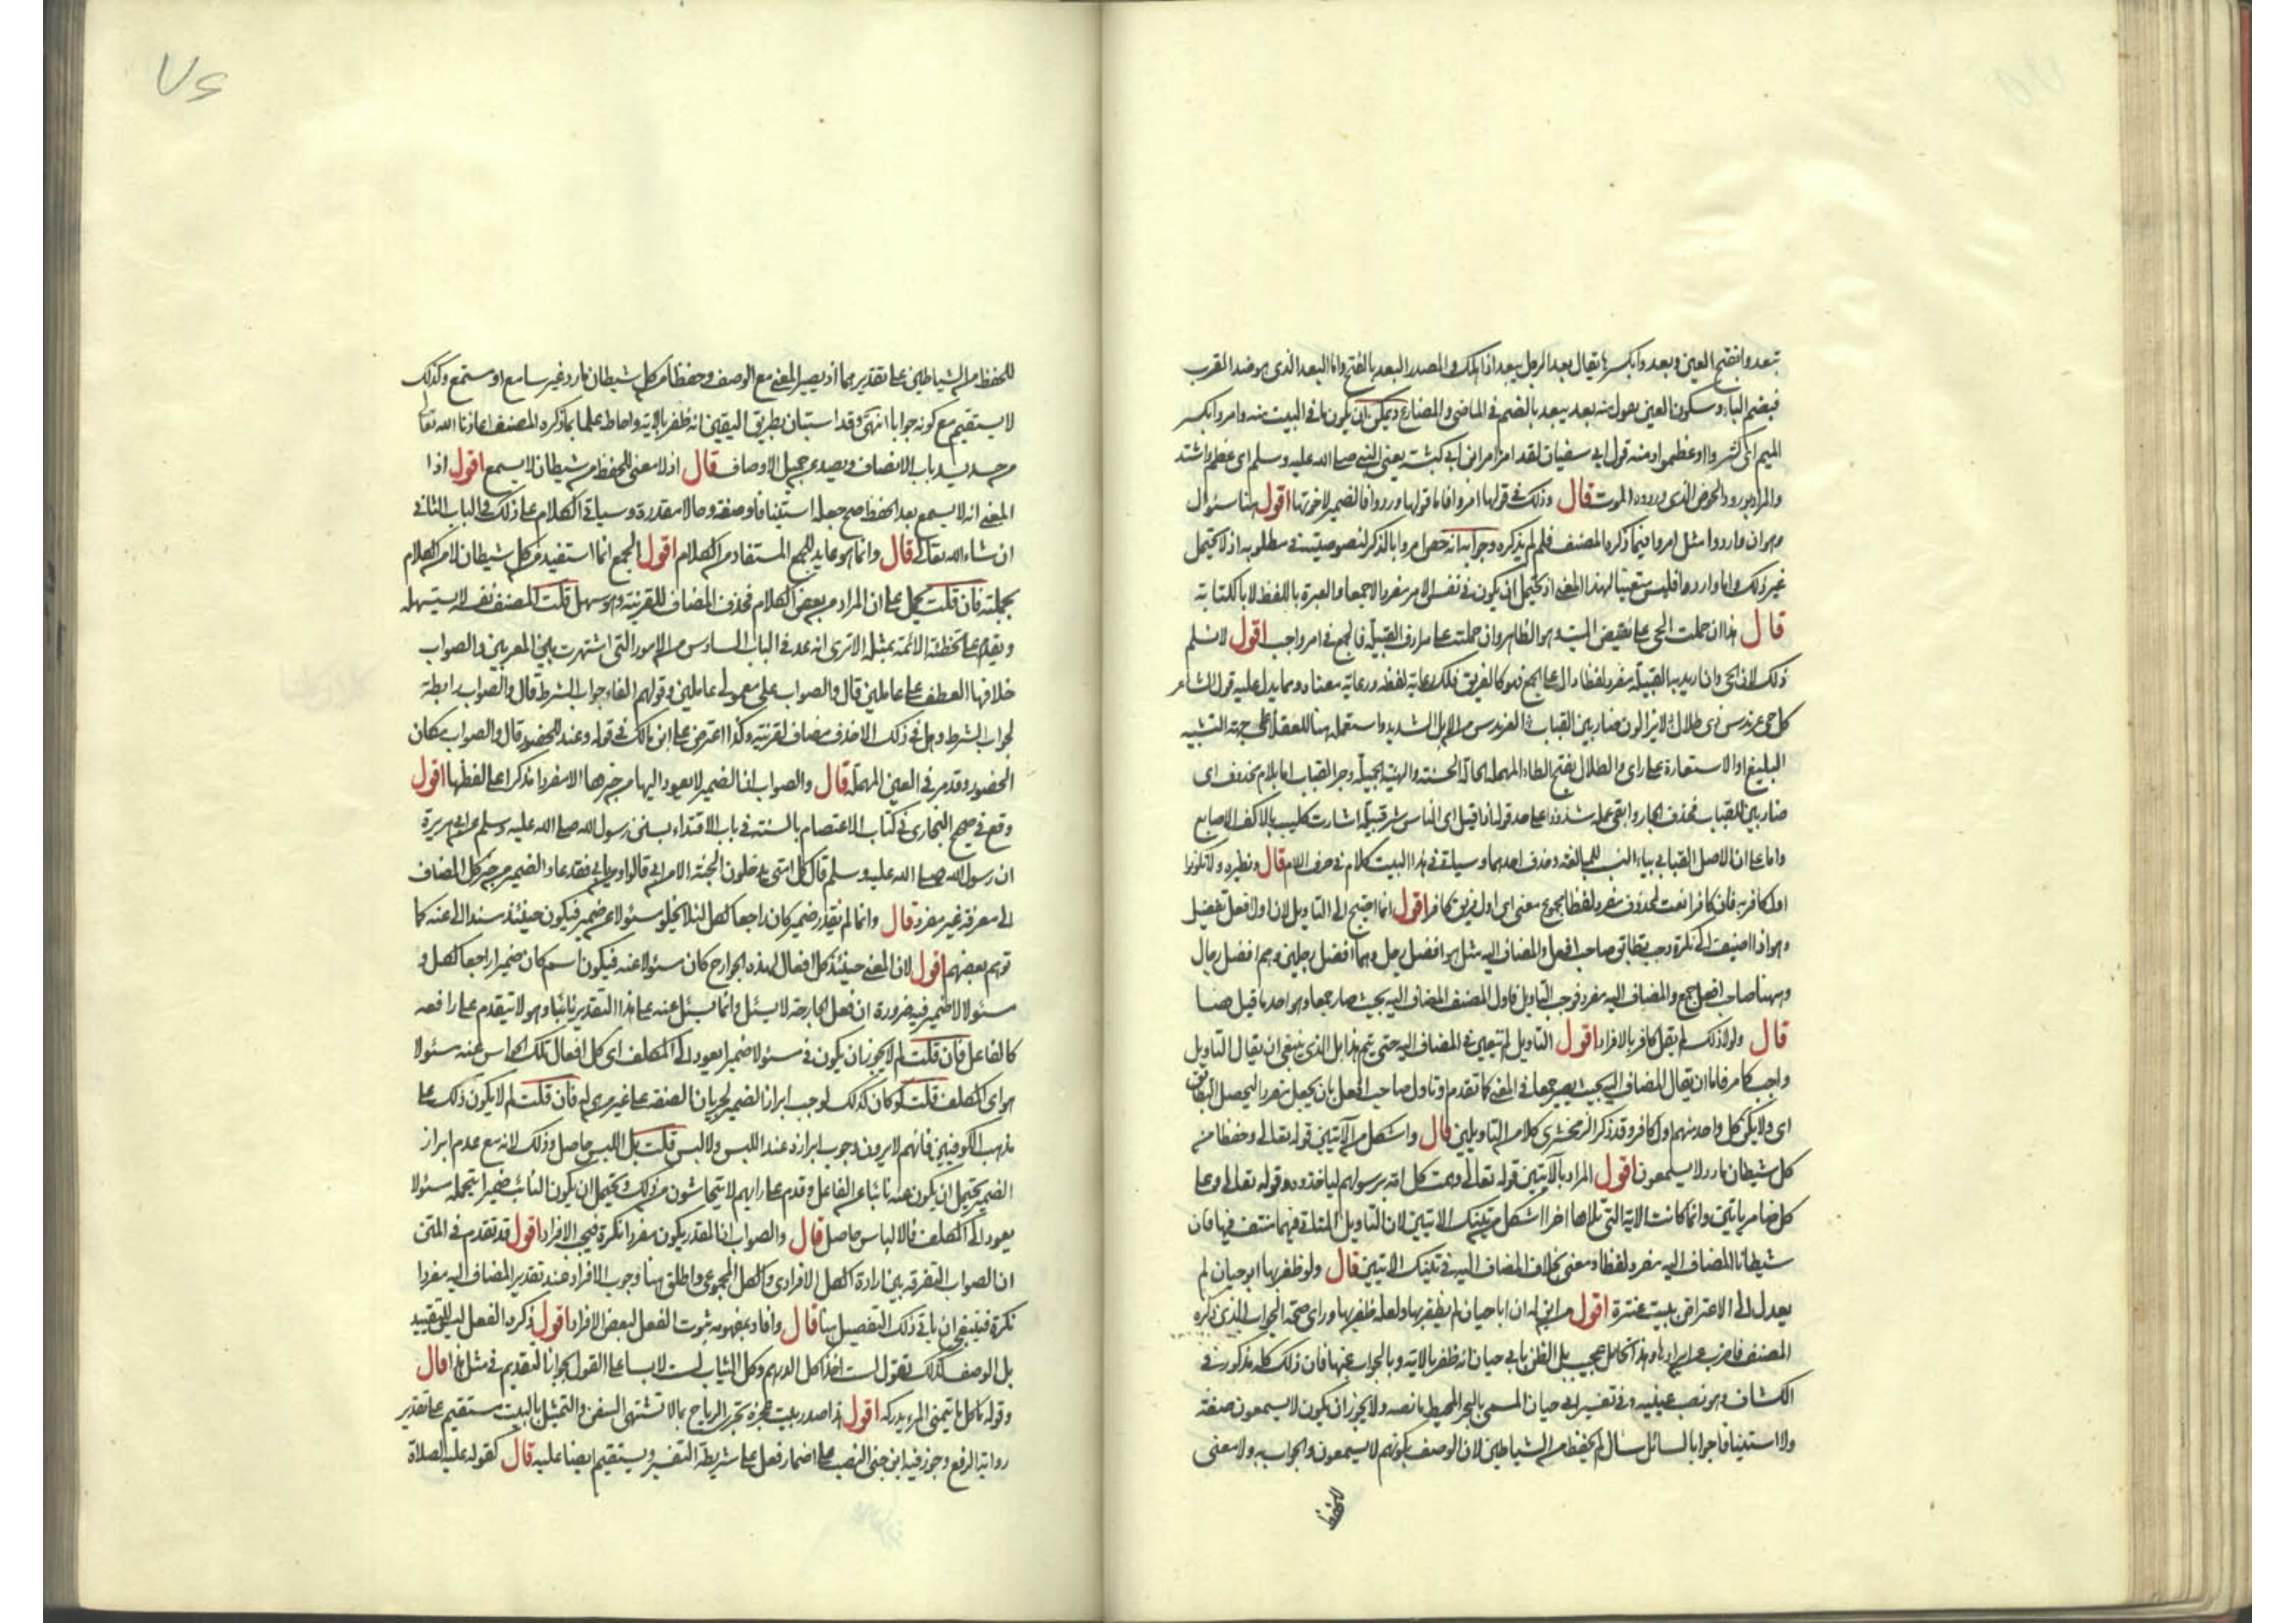 تبعدوا بفتح العين وبعدوا بكسرها يقال بعد الرجل يبعد اذا هلك والمصدر البعد بالفتح واما البعد الذى هو ضد القرب
فبضم الباء وسكون العين يقول منه بعد يبعد بالضم فى الماضى والمضارع ويمكن ان يكون ما فى البيت منه وامروا بكسر
الميم اى كثروا او عظموا ومنه قول ابى سفيان لقد امر امر ابن ابى كبشة يعنى النبى صلى الله عليه وسلم اى عظم واشتد
والمراد بورود الحوض الذى وردوه الموت قال وذلك فى قولها امروا فاما قولها وردوا فالضمير لاخوتها اقول هنا سئوال
وهو ان ما وردوا مثل امروا فيما ذكره المصنف فلم لم يذكره وجوابه انه خص امروا بالذكر لنصوصيته فى مطلوبه اذ لا يحتمل
غير ذلك واما واردوها فليس متعينا لهذا المعنى اذ يحتمل ان يكون فى نفس الامر مفردا لا جمعا والعبرة باللفظ لا بالكتابة
قال هذا ان حملت الحى على نقيض الميت وهو الظاهر وان حملته على مرادف القبيلة فالجمع فى امر واجب اقول لا نسلم
ذلك لان الحى وان اريد به القبيلة مفرد لفظا دال على الجمع فهو كالفريق فلك رعاية لفظه ورعاية معناه ومما يدل عليه قول الشاعر
كل حى عرندس ذى طلال لا يزالون ضاربين القباب العرندس من الابل الشديد واستعمله هنا للعقلا على جهة التشبيه
البليغ او الاستعارة على راى والطلال بفتح الطاء المهملة الحالة الحسنة والهيئة الجميلة وجر القباب اما بلام محذوف اى
ضاربين للقباب فحذف الجار وابقى عمله شذوذا على حد قوله اذا قيل اى الناس شر قبيلة اشارت كليب بالاكف الاصابع
واما على ان الاصل القبابى بياء النسب للمبالغة وحذف احدهما وسيلتقى فى هذا البيت كلام فى حرف اللام قال ونظيره ولا تكونوا
اول كافر به فان كافرا نعت لمحذوف مفرد لفظا مجموع معنى اى اول فريق كافر اقول انما احتيج الى التاويل لان اول افعل تفضيل
وهو اذا اضيف الى نكرة وجب تطابق صاحب افعل والمضاف اليه مثل هو افضل رجل وهما افضل رجلين وهم افضل رجال
وههنا صاحب افعل جمع والمضاف اليه مفرد فوجب التاويل فاول المصنف المضاف اليه بحيث صار جمعا وهو احد ما قيل هنا
قال ولولا ذلك لم يقل كافر بالافراد اقول التاويل لم يتعين فى المضاف اليه حتى يتم هذا بل الذى ينبغى ان يقال التاويل
واجب كما مر فاما ان يقال المضاف اليه بحيث يصير جمعا فى المعنى كما تقدم او تاول صاحب افعل بان يجعل مفردا ليحصل التطابق
اى ولا يكن كل واحد منهم اول كافر وقد ذكر الزمخشرى كلا من التاويلين قال واشكل من الآيتين قوله تعالى وحفظا من
كل شيطان مارد لا يسمعون اقول المراد بالآيتين قوله تعالى وهمت كل امة برسولهم لياخذوه وقوله تعالى وعلى
كل ضامر ياتين وانما كانت الآية التى تلاها اخرا اشكل من تينك الايتين لان التاويل المتلقى فيهما منتف فيها فان
شيطانا المضاف اليه مفرد لفظا ومعنى بخلاف المضاف اليه فى تينك الايتين قال ولو ظفر بها ابو حيان لم
يعدل الى الاعتراض ببيت عنترة اقول من اين له ان ابا حيان لم يظفر بها ولعله ظفر بها وراى صحة الجواب الذى ذكره
المصنف فاضرب عن ايرادها وهذا تحامل عجيب بل الظن بابى حيان انه ظفر بالاية وبالجواب عنها فان ذلك كله مذكور فى
الكشاف وهو نصب عينيه وفى تفسير ابى حيان المسمى بالبحر المحيط ما نصه ولا يجوز ان يكون لا يسمعون صفة
ولا استينافا جوابا لسائل سال لم يحفظ من الشياطين لان الوصف بكونهم لا يسمعون والجواب به ولا معنى
للحفظ
للحفظ من الشياطين على تقديرهما اذ يصير المعنى مع الوصف وحفظا من كل شيطان مارد غير سامع او مستمع وكذلك
لا يستقيم مع كونه جوابا انتهى وقد استبان بطريق اليقين انه ظفر بالاية واحاط علما بما ذكره المصنف اعاذنا الله تعالى
من حسد يسد باب الانصاف ويصد عن جميل الاوصاف قال اذ لا معنى للحفظ من شيطان لا يسمع اقول اذا
المعنى انه لا يسمع بعد الحفظ صح جعله استينافا وصفة وحالا مقدرة وسياتى الكلام على ذلك فى الباب الثانى
ان شاء الله تعالى قال وانما هو عايد للجمع المستفاد من الكلام اقول الجمع انما استفيد من كل شيطان لا من الكلام
بجملته فان قلت يحمل على ان المراد من بعض الكلام فحذف المضاف للقرينة وهو سهل قلت المصنف نفسه لا يستسهله
ويقدم على تخطئة الائمة بمثله الا ترى انه عد فى الباب السادس من الامور التى اشتهرت بين المعربين والصواب
خلافها العطف على عاملين قال والصواب على معمولى عاملين وقولهم الفاء جواب الشرط قال والصواب رابطة
لجواب الشرط وهل فى ذلك الا حذف مضاف لقرينة وكذا اعترض على ابن مالك فى قوله وعند الحضور قال والصواب مكان
الحضور وقد مر فى العين المهملة قال والصواب ان الضمير لا يعود اليها من خبرها الا مفردا مذكرا على لفظها اقول
وقع فى صحيح البخارى فى كتاب الاعتصام بالسنة فى باب الاقتداء بسنن رسول الله صلى الله عليه وسلم عن ابى هريرة
ان رسول الله صلى الله عليه وسلم قال كل امتى يدخلون الجنة الا من ابى قالوا ومن يابى فقد عاد الضمير من خبر كل المضاف
الى معرفة غير مفرد قال وانما لم نقدر ضمير كان راجعا لكل لئلا يخلو مسئولا عن ضمير فيكون حينئذ مسندا الى عنه كما
توهم بعضهم اقول لان المعنى حينئذ كل افعال هذه الجوارح كان مسئولا عنه فيكون اسم كان ضميرا راجعا لكل و
مسئولا لا ضمير فيه ضرورة ان فعل الجارحة لا يسئل وانما يسئل عنه على هذا التقدير نائبا وهو لا يتقدم على رافعه
كالفاعل فان قلت لم لا يجوز ان يكون فى مسئولا ضمير يعود الى المكلف اى كل افعال تلك الحواس عنه مسئولا
هو اى المكلف قلت لو كان كذلك لوجب ابراز الضمير لجريان الصفة على غير من هى له فان قلت لم لا يكون ذلك على
مذهب الكوفيين فانهم لا يرون وجوب ابرازه عند اللبس ولا لبس قلت بل اللبس حاصل وذلك لانه مع عدم ابراز
الضمير يحتمل ان يكون عنه نائبا عن الفاعل وقدم على رايهم لا يتحاشون من ذلك ويحتمل ان يكون النائب ضميرا يتحمله مسئولا
يعود الى المكلف فالالباس حاصل قال والصواب ان المقدر يكون مفردا نكرة فيجب الافراد اقول قد تقدم فى المتن
ان الصواب التفرقة بين ارادة الكل الافرادى والكل المجموعى واطلق هنا وجوب الافراد عند تقدير المضاف اليه مفردا
نكرة فينبغى ان ياتى ذلك التفصيل هنا قال وافاد بمفهومه ثبوت الفعل لبعض الافراد اقول ذكره الفعل ليس للتقييد
بل الوصف كذلك تقول لست آخذا كل الدرهم وكل الثياب لست لابسا على القول بجواز التقديم فى مثل هذا قال
وقوله ما كل ما يتمنى المرء يدركه اقول هذا صدر بيت عجزه تجرى الرياح بما لا تشتهى السفن والتمثيل بالبيت مستقيم على تقدير
رواية الرفع وجوز فيه ابن جنى النصب على اضمار فعل على شريطة التفسير ويستقيم ايضا عليه قال كقوله عليه الصلاة